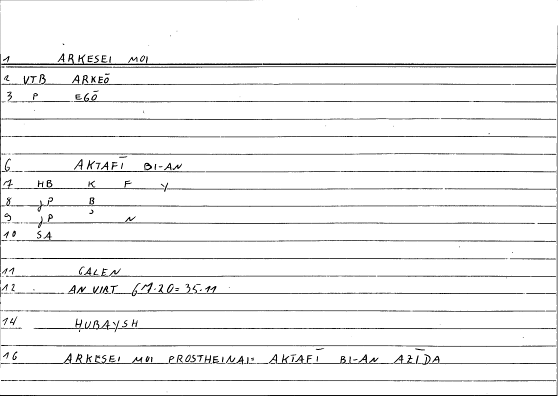 1 ARKESEI MOI
2 VTB ARKEŌ
3 P EGŌ
6 AKTAFĪ BI-AN
7 HB K F Y
8 jP B
9 jP ʾ N
10 SA
11 GALEN
12 AN VIRT 67.20=35.11
14 ḤUBAYSH
16 ARKESEI MOI PROSTHEINAI= AKTAFĪ BI-AN AZĪDA